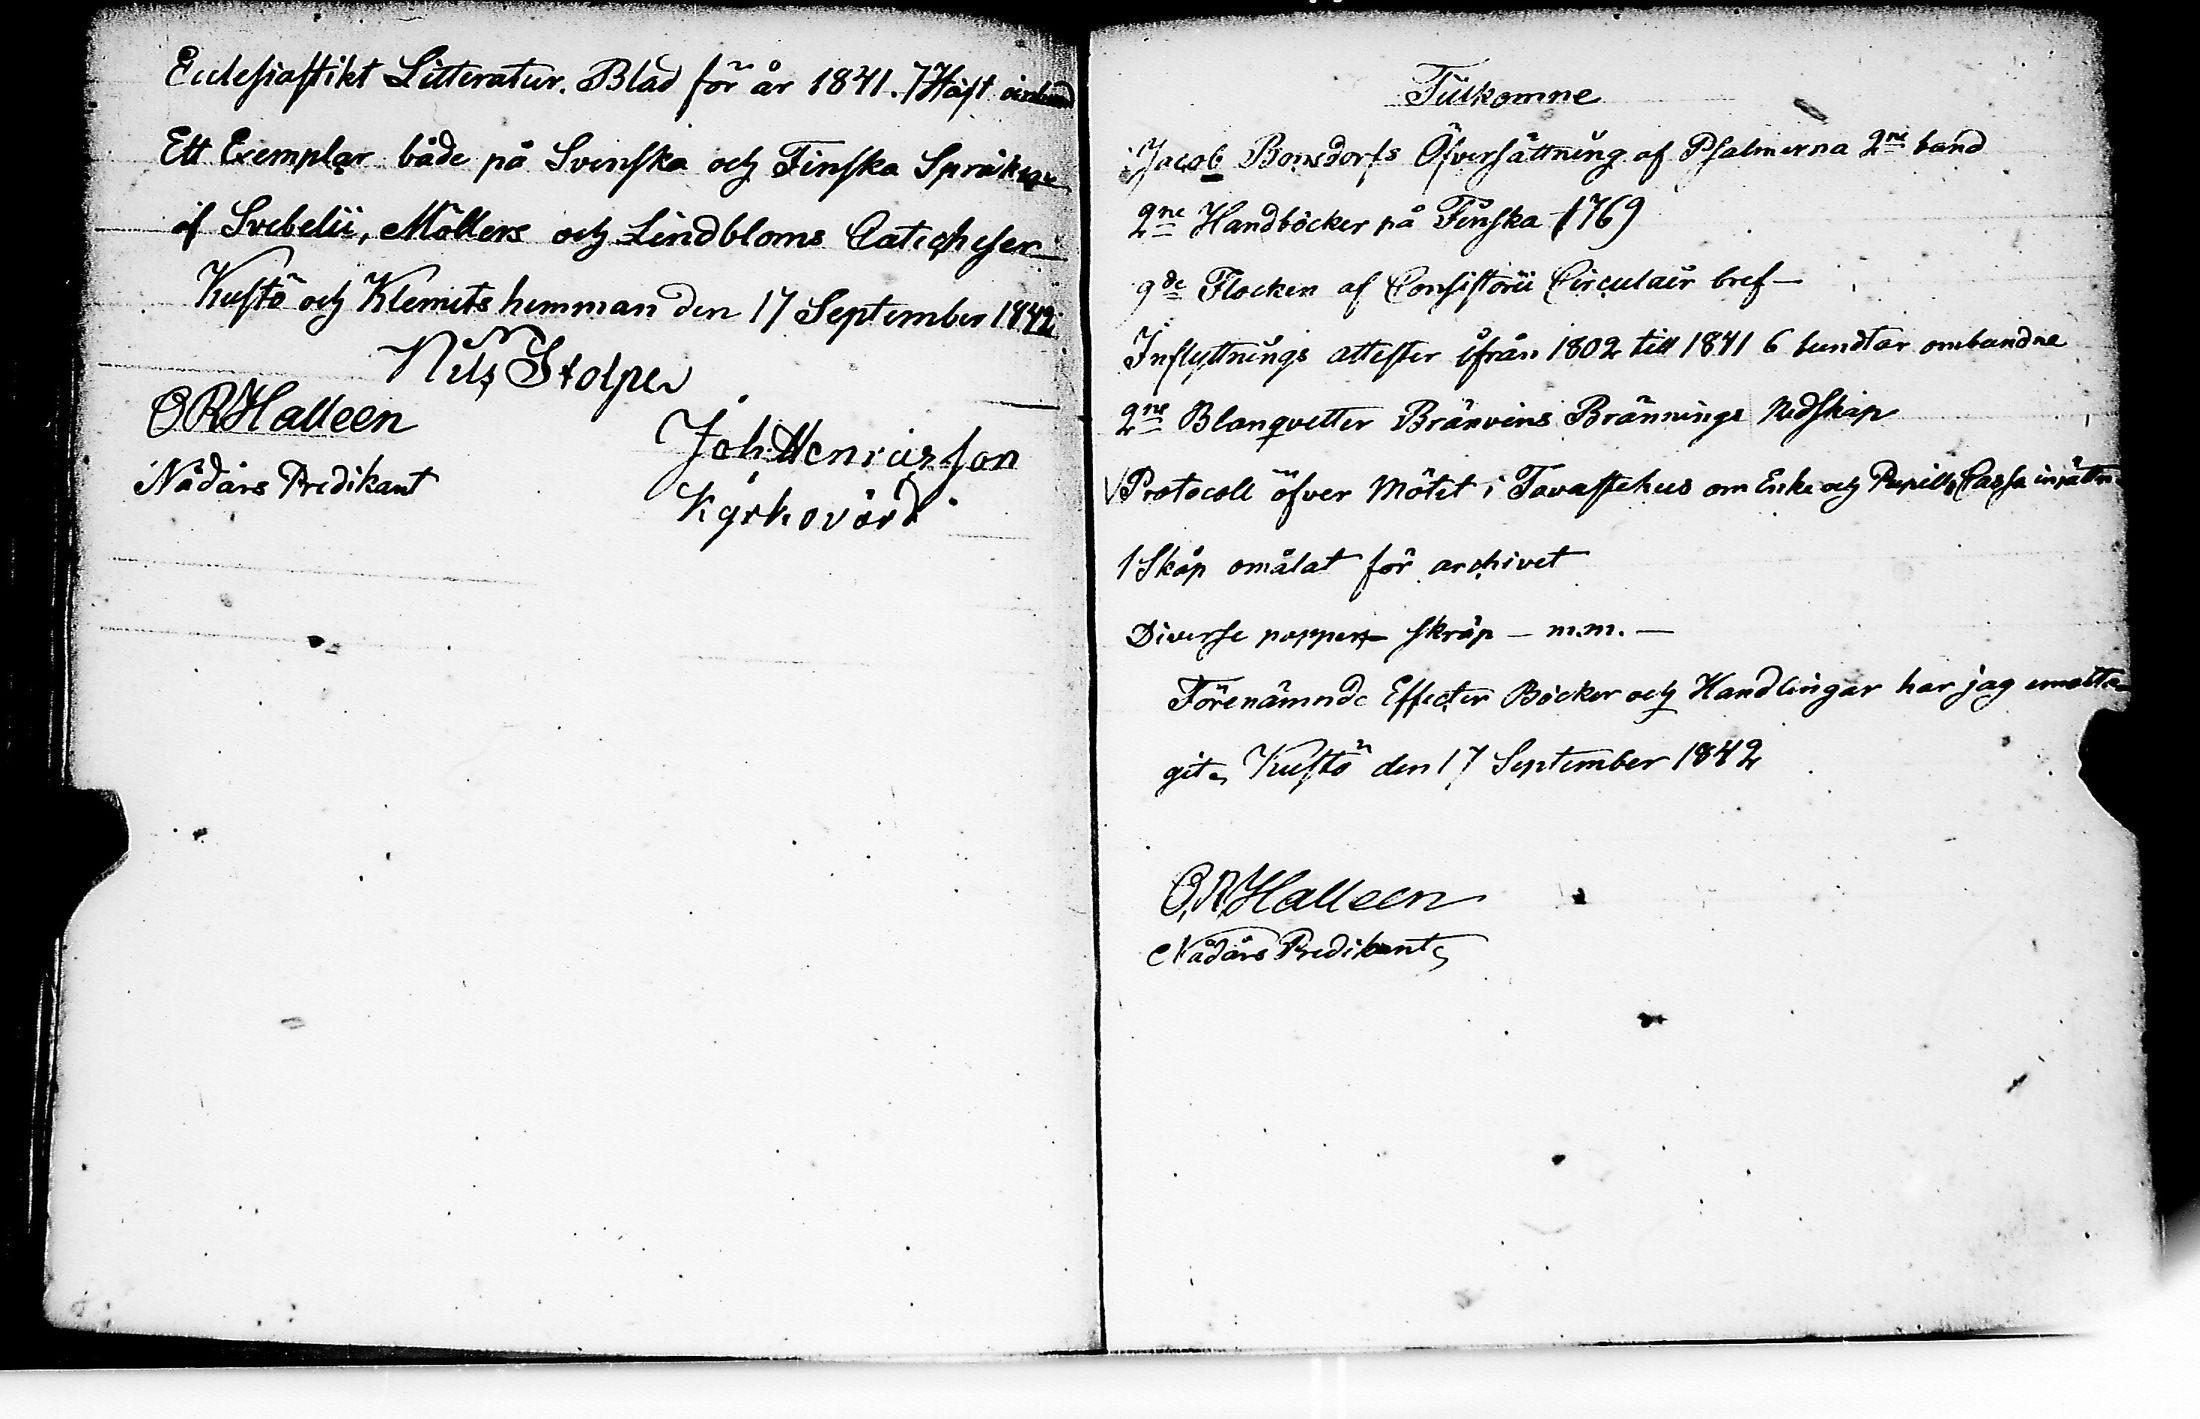 Ecclesiastikt Litteratur. Blad för år 1841. 7 Häft
Ett Exemplar både på Svenska och Finska Språken
af Svebelii, Möllers och Lindbloms Catecheser
Kustö och Klemets hemman den 17 September 1842
Nils Stolpe
O R Halleen
Nådårs Predikant
Joh: Henricsson
Kyrkovärd
Tillkomne
Jacob Bonsdorfs Öfversättning af Psalmerna 2ne band
2ne Handböcker på Finska 1769
9de Flocken af Consistorii Circulair bref —
Inflyttnings attester ifrån 1802 till 1841 6 bundtar ombundne
2ne Blanqvetter Bränvins Brännings Redskap
Protocoll öfver Mötet i Tavastehus om Enke och Pupill Cassa inrättn
1 Skåp omålat för archivet
Diverse pappers skräp — m.m. —
Förenämnde Effecter Böcker och Handlingar har jag emotta-
git, Kustö den 17 September 1842
O, R, Halleen
Nådårs Predikant,